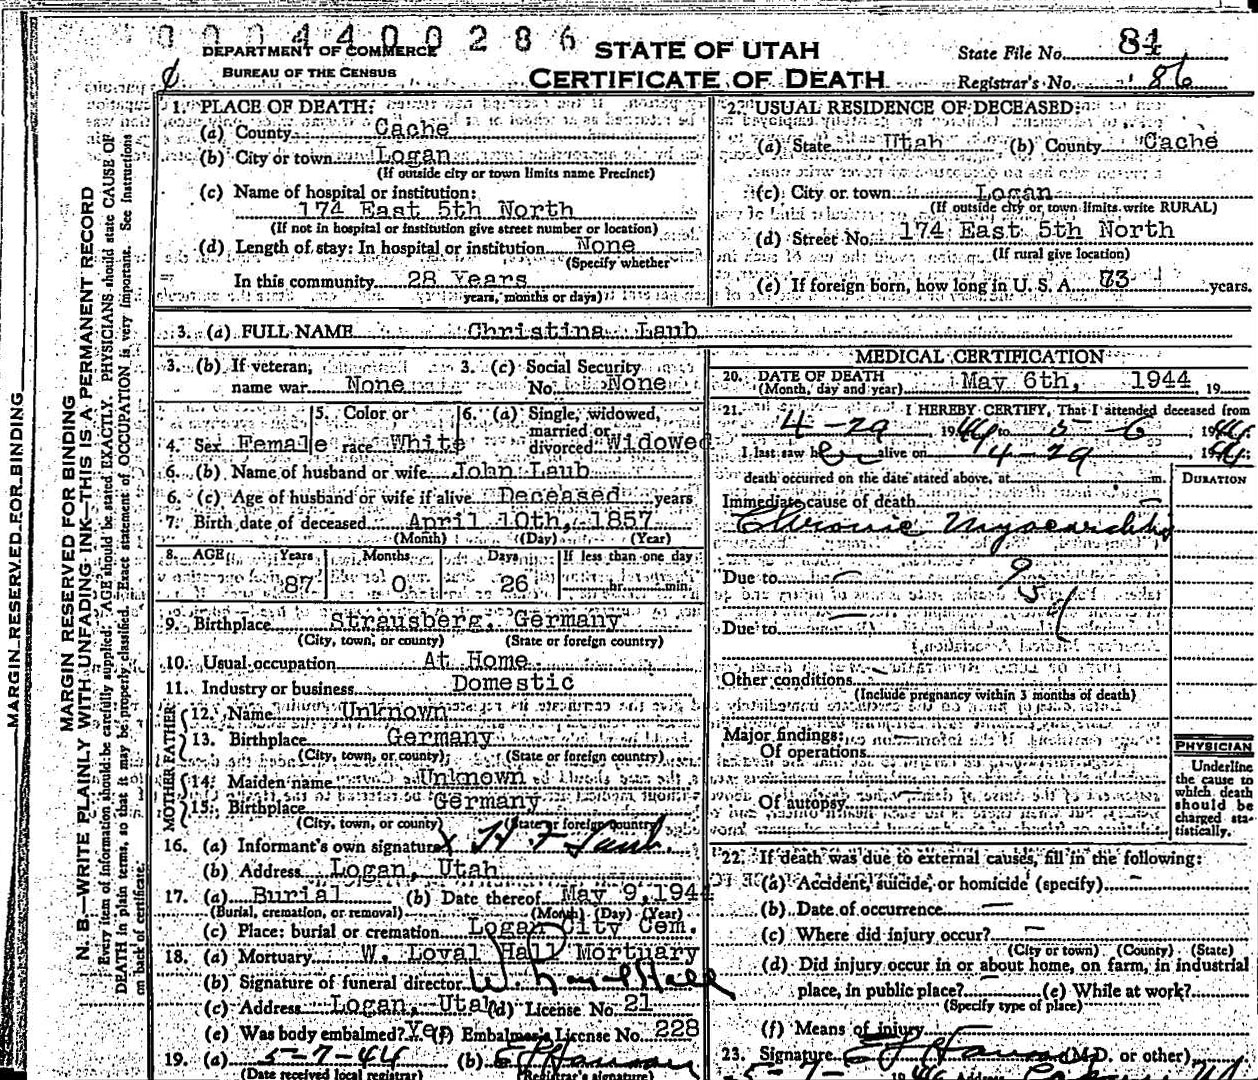 0 0 0 4 4 0 0 2 8 6
DEPARTMENT OF COMMERCE
BUREAU OF THE CENSUS
STATE OF UTAH
CERTIFICATE OF DEATH
State File No. 84
Registrar's No. 86
MARGIN RESERVED FOR BINDING
MARGIN RESERVED FOR BINDING
N. B.—WRITE PLAINLY WITH UNFADING INK—THIS IS A PERMANENT RECORD
Every item of information should be carefully supplied. AGE should be stated EXACTLY. PHYSICIANS should state CAUSE OF
DEATH in plain terms, so that it may be properly classified. Exact statement of OCCUPATION is very important. See instructions
on back of certificate.
1. PLACE OF DEATH:
(a) County Cache
(b) City or town Logan
(If outside city or town limits name Precinct)
(c) Name of hospital or institution:
174 East 5th North
(If not in hospital or institution give street number or location)
(d) Length of stay: In hospital or institution None
(Specify whether
In this community 28 Years
years, months or days)
2. USUAL RESIDENCE OF DECEASED:
(a) State Utah (b) County Cache
(c) City or town Logan
(If outside city or town limits write RURAL)
(d) Street No. 174 East 5th North
(If rural give location)
(e) If foreign born, how long in U. S. A. 73 years.
3. (a) FULL NAME Christina Laub
3. (b) If veteran, name war None
3. (c) Social Security No. None
4. Sex Female
5. Color or race White
6. (a) Single, widowed, married or divorced Widowed
6. (b) Name of husband or wife John Laub
6. (c) Age of husband or wife if alive Deceased years
7. Birth date of deceased April 10th, 1857
(Month) (Day) (Year)
8. AGE Years Months Days If less than one day
87 0 26 hr. min.
9. Birthplace Strausberg, Germany
(City, town, or county) (State or foreign country)
10. Usual occupation At Home
11. Industry or business Domestic
FATHER
12. Name Unknown
13. Birthplace Germany
(City, town, or county) (State or foreign country)
MOTHER
14. Maiden name Unknown
15. Birthplace Germany
(City, town, or county) (State or foreign country)
16. (a) Informant's own signature x H. F. Laub.
(b) Address Logan, Utah
17. (a) Burial (b) Date thereof May 9, 1944
(Burial, cremation, or removal) (Month) (Day) (Year)
(c) Place: burial or cremation Logan City Cem.
18. (a) Mortuary W. Loyal Hall Mortuary
(b) Signature of funeral director W. Loyal Hall
(c) Address Logan, Utah (d) License No. 21
(e) Was body embalmed? Yes (f) Embalmer's License No. 228
19. (a) 5-7-44 (b)
(Date received local registrar) (Registrar's signature)
MEDICAL CERTIFICATION
20. DATE OF DEATH
(Month, day and year) May 6th, 1944 19
21. I HEREBY CERTIFY, That I attended deceased from
4-29, 1944 to 5-6, 1944
I last saw her alive on 4-29, 1944;
death occurred on the date stated above, at m.
DURATION
Immediate cause of death
Chronic Myocarditis
Due to —
93d
Due to —
Other conditions
(Include pregnancy within 3 months of death)
Major findings:
Of operations
Of autopsy
PHYSICIAN
Underline
the cause to
which death
should be
charged sta-
tistically.
22. If death was due to external causes, fill in the following:
(a) Accident, suicide, or homicide (specify) —
(b) Date of occurrence —
(c) Where did injury occur? —
(City or town) (County) (State)
(d) Did injury occur in or about home, on farm, in industrial
place, in public place? — (e) While at work?
(Specify type of place)
(f) Means of injury —
23. Signature (M.D. or other)